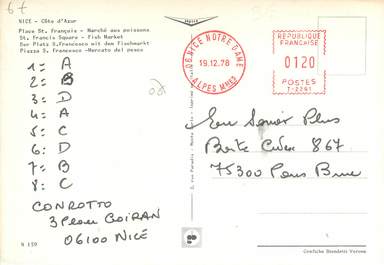 67
NICE - Côte d'Azur
Place St. François - Marché aux poissons
St. Francis Square - Fish Market
Der Platz S.Francesco mit dem Fischmarkt
Piazza S. Francesco - Mercato dei pesce
1: A
2: B
3: D
4: A
5: C
6: D
7: B
8: C
CONROTTO
3 Place GOIRAN
06100 NICE
N 159
06 NICE NOTRE DAME
19.12.78
ALPES MMES
REPUBLIQUE
FRANCAISE
0120
POSTES
T-2291
Jeu Senior Plus
Boite Cedex 867
75300 Paris Brune
Grafiche Bendetti Verona